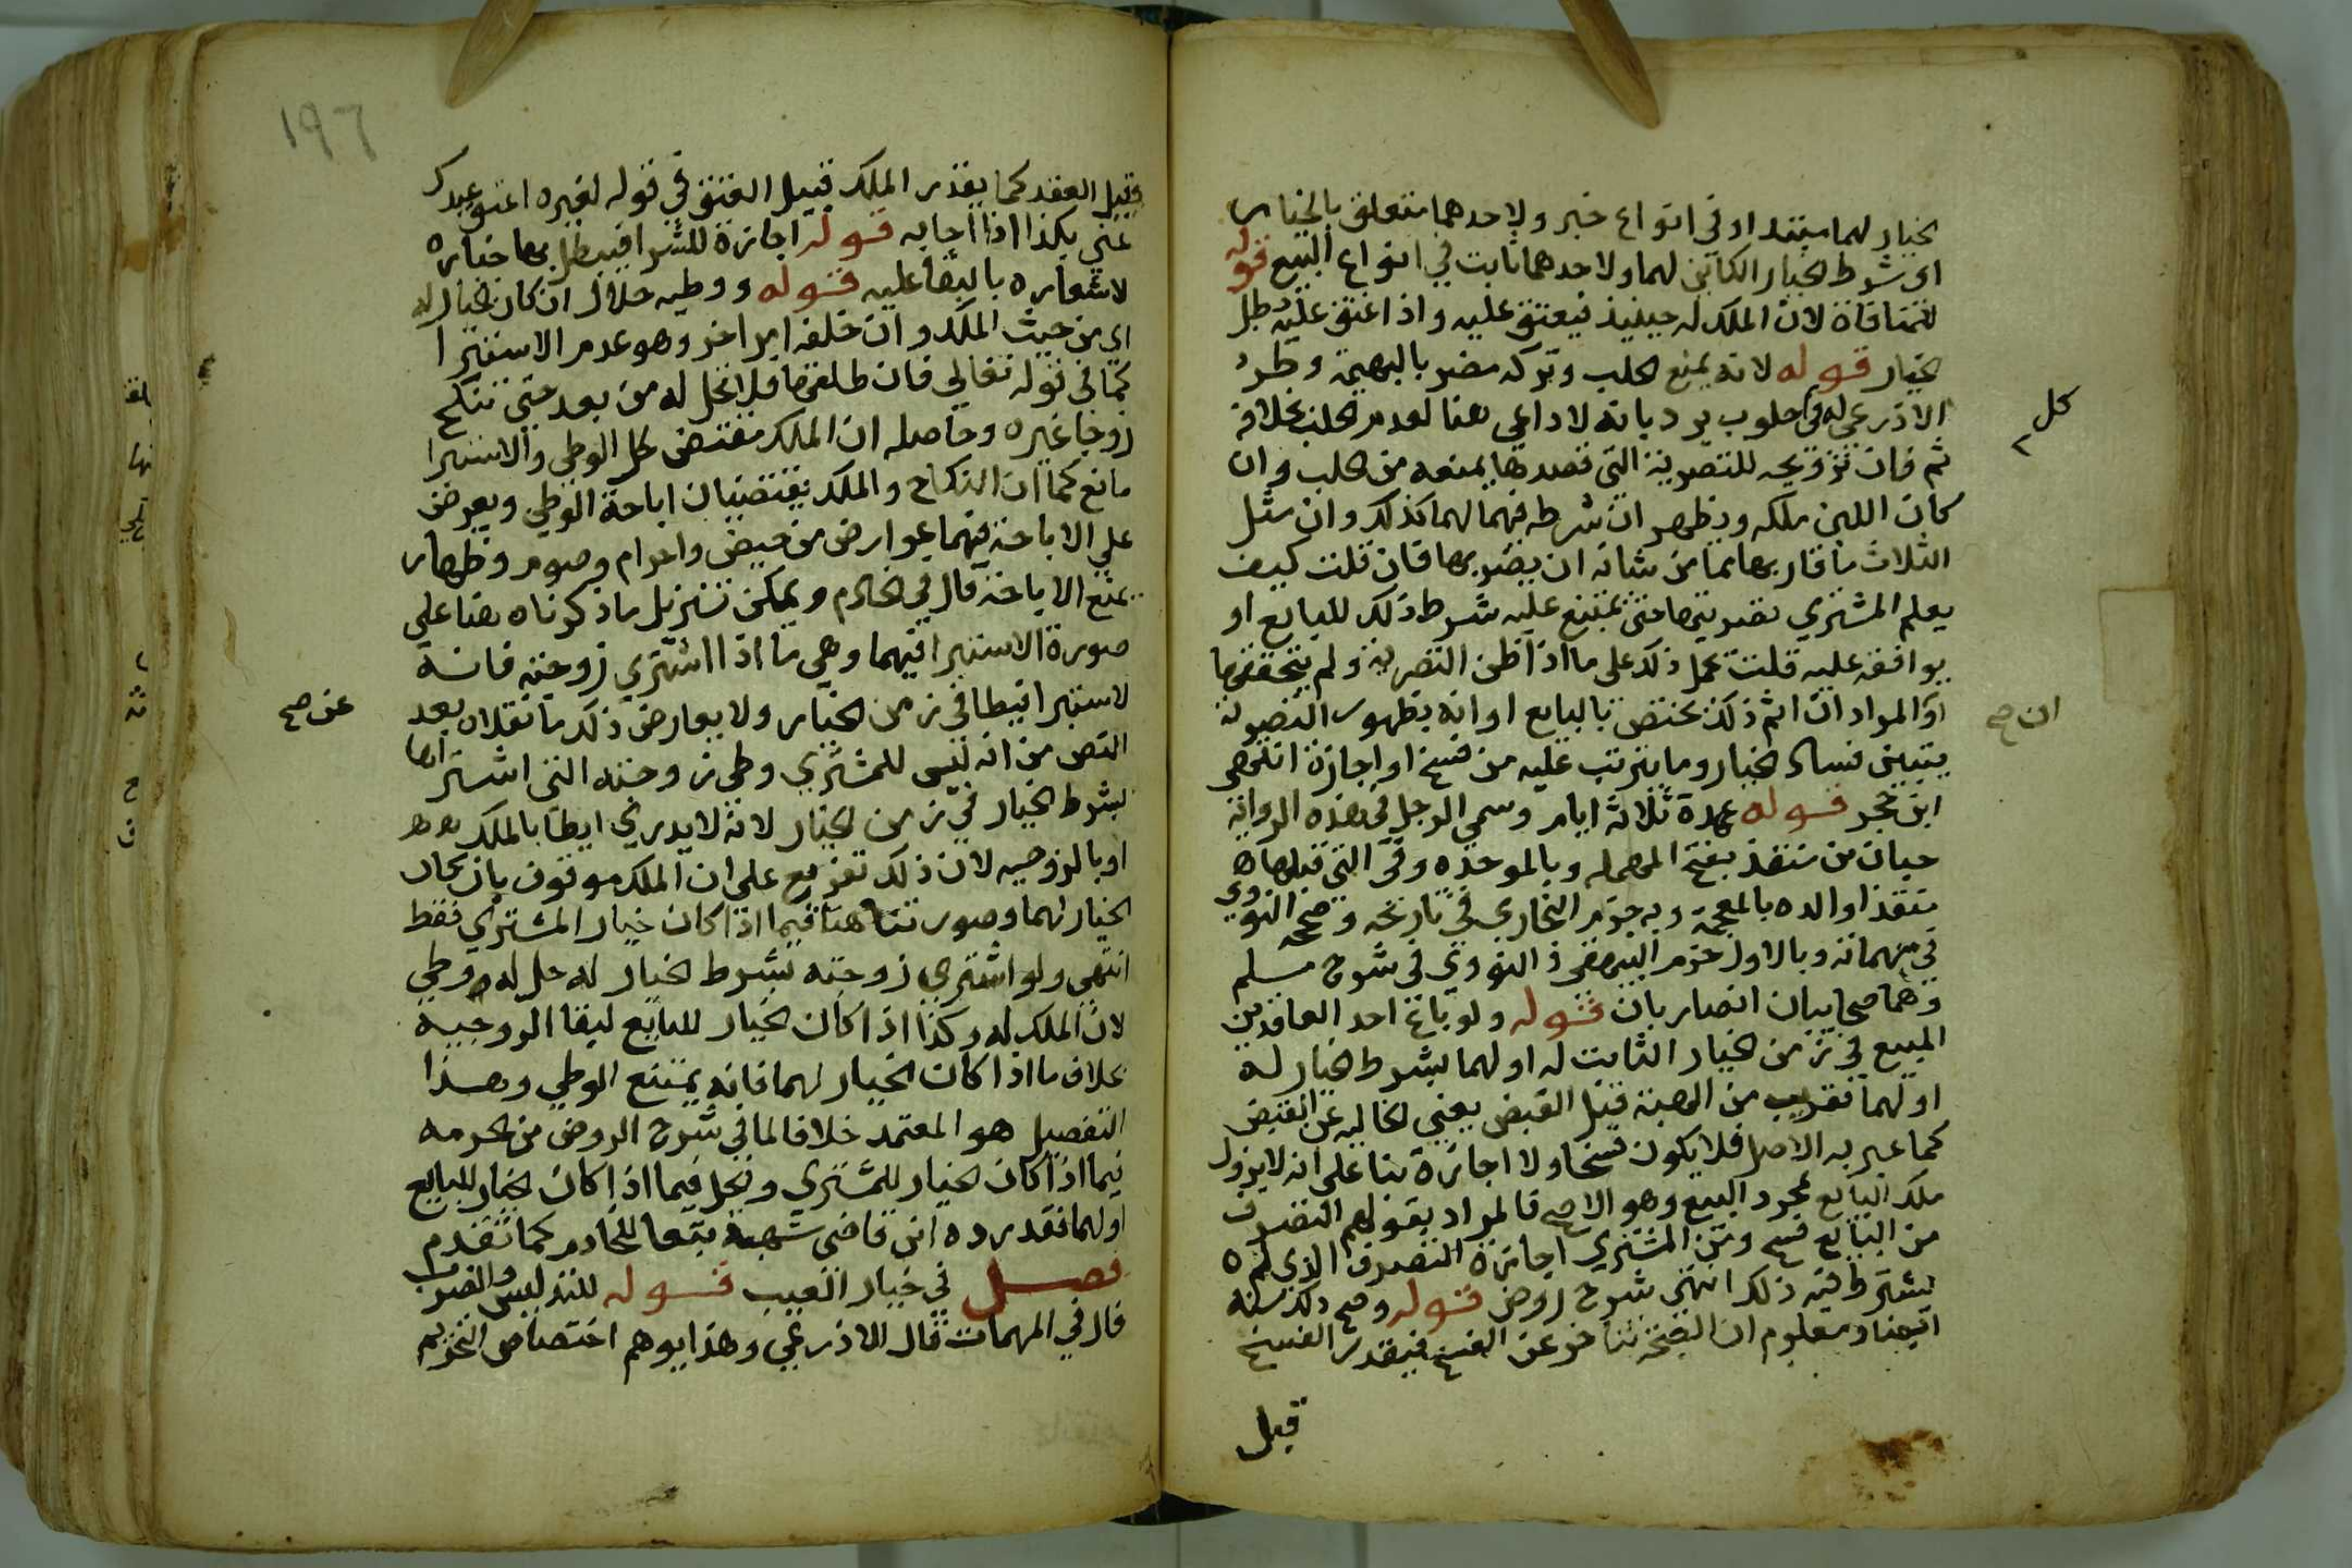 الخيار لهما مبتدا وفي انواع خبر ولاحدهما متعلق بالخيار
اي شرط الخيار الكاين لهما ولاحدهما ثابت في انواع البيع قوله
للمنافاة لان الملك له حينيذ فيعتق عليه واذا عتق عليه بطل
الخيار قوله لانه يمنع الحلب وتركه مضر بالبهيمة وطرد
الاذرعي له في حلوب يرد بانه لا داعي هنا لعدم الحلب بخلافه
كل
ثم فان ترويجه للتصوية التي قصدها يمنعه من الحلب وان
كان اللبن ملكه ويظهر ان شرطه فيهما لهما كذلك وان مثل
الثلاث ما قاربها مما من شانه ان يضر بها فان قلت كيف
يعلم المشتري تصريتها حتى يمتنع عليه شرط ذلك للبايع او
يوافقه عليه قلت يحمل ذلك على ما اذا ظن التصرية ولم يتحققها
او المراد ان اثم ذلك يختص بالبايع او انه بظهور التصرية
ان صح
يتبين فساد الخيار وما يترتب عليه من فسخ او اجازة انتهى
ابن حجر قوله عهدة ثلاثة ايام وسمي الرجل في هذه الرواية
حبان بن منقذ بفتح المهمله وبالموحده وفي التي قبلها
منقذا والده بالمعجمة وبه جزم البخاري في تاريخه وصححه النووي
في مبهماته وبالاول جزم البيهقي والنووي في شرح مسلم
وهما صحابيان انصاريان قوله ولو باع احد العاقدين
المبيع في زمن الخيار الثابت له او لهما بشرط الخيار له
او لهما تقريب من الهبة قبل القبض يعني الخاليه عن القبض
كما عبر به الاصل فلا يكون فسخا ولا اجازة بنا على انه لا يزول
ملك البايع بمجرد البيع وهو الاصح فالمراد بقولهم التصرف
من البايع فسخ ومن المشتري اجازة التصرف الذي لم
يشترط فيه ذلك انتهى شرح روض قوله وصح ذلك منه
ايضا ومعلوم ان الصحة تتاخر عن الفسخ فيقدر الفسخ
قبل
١٩٦
قبيل العقد كما يقدر الملك قبيل العتق في قوله لغيره اعتق عبدك
عني بكذا اذا اجابه قوله اجازة للشرا فيبطل بها خياره
لاشعاره بالبقا عليه قوله ووطيه حلال ان كان الخيار له
اي من حيث الملك وان خلفه امر اخر وهو عدم الاستبرا
كما في قوله تعالي فان طلقها فلا تحل له من بعد حتى تنكح
زوجا غيره وحاصله ان الملك مقتض لحل الوطي والاستبرا
مانع كما ان النكاح والملك يقتضيان اباحة الوطي ويعرض
علي الاباحة فيهما عوارض من حيض واحرام وصوم وظهار
تمنع الاباحة قال في الخادم ويمكن تنزيل ما ذكرناه هنا علي
صورة الاستبرا فيهما وهي ما اذا اشتري زوجته فانه
لا استبرا فيطا في زمن الخيار ولا يعارض ذلك ما نقلاه بعد
عن صح
النص من انه ليس للمشتري وطي زوجته التي اشتراها
بشرط الخيار في زمن الخيار لانه لا يدري ايطا بالملك
او بالزوجيه لان ذلك تفريع على ان الملك موقوف بان كان
الخيار لهما وصورتنا هنا فيما اذا كان خيار المشتري فقط
انتهى ولو اشتري زوجته بشرط الخيار له حل له وطي
لان الملك له وكذا اذا كان الخيار للبايع لبقا الزوجية
بخلاف ما اذا كان الخيار لهما فانه يمتنع الوطي وهذا
التفصيل هو المعتمد خلافا لما في شرح الروض من الحرمه
فيما اذا كان الخيار للمشتري والحل فيما اذا كان الخيار للبايع
او لهما فقد رده ابن قاضي شهبة تبعا للخادم كما تقدم
فصل في خيار العيب قوله للتدليس والضرر
قال في المهمات قال الاذرعي وهذا يوهم اختصاص التحريم